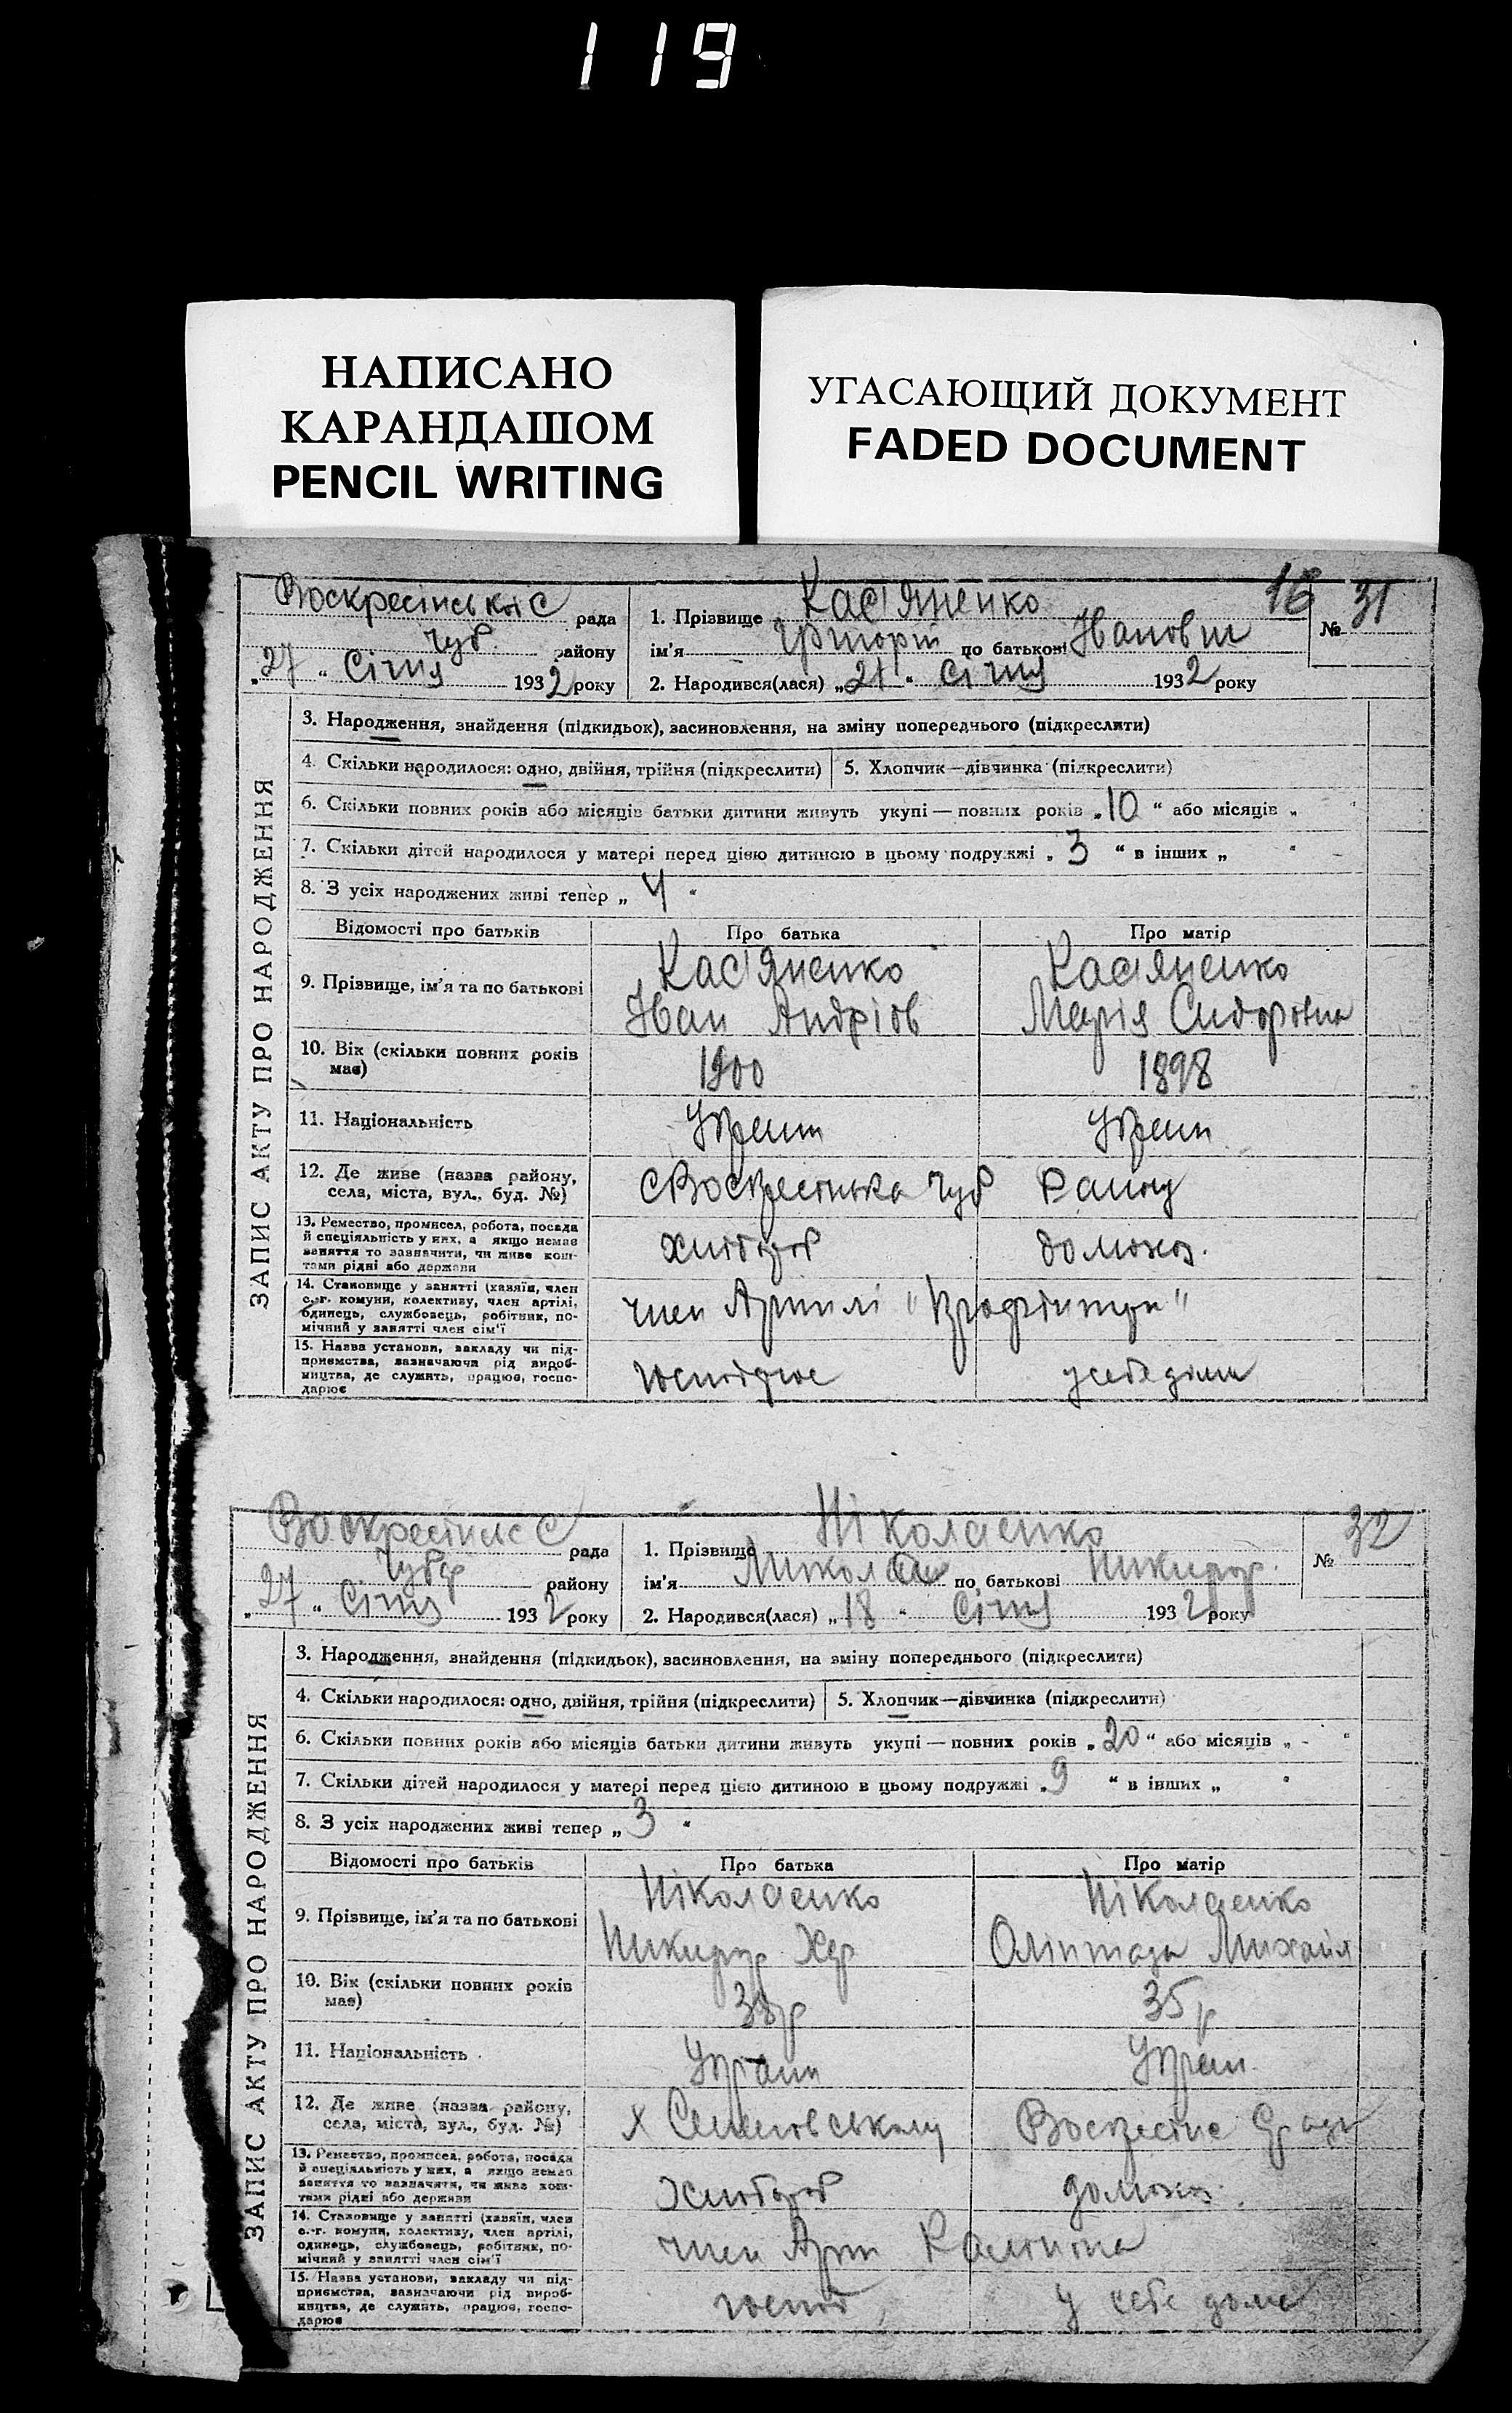 119
НАПИСАНО
КАРАНДАШОМ
PENCIL WRITING
УГАСАЮЩИЙ ДОКУМЕНТ
FADED DOCUMENT
16
ЗАПИС АКТУ ПРО НАРОДЖЕННЯ
Воскресінської С рада
Чуб. району
„27“ Січня 1932 року
1. Прізвище Кас'яненко
№ 31
ім'я по батькові Іванович
2. Народився(лася) „21“ Січня 1932 року
3. Народження, знайдення (підкидьок), засиновлення, на зміну попереднього (підкреслити)
4. Скільки народилося: одно, двійня, трійня (підкреслити) 5. Хлопчик—дівчинка (підкреслити)
6. Скільки повних років або місяців батьки дитини живуть укупі — повних років „10“ або місяців „ “
7. Скільки дітей народилося у матері перед цією дитиною в цьому подружжі „3“ в інших „ “
8. З усіх народжених живі тепер „4“
Відомості про батьків Про батька Про матір
9. Прізвище, ім'я та по батькові Кас'яненко Кас'яненко
Іван Андріїв Марія Сидоровна
10. Вік (скільки повних років має) 1900 1898
11. Національність Украін Украін
12. Де живе (назва району, села, міста, вул., буд. №) С Воскресінька Чуб Району
13. Ремество, промисел, робота, посада й спеціяльність у них, а якщо немає заняття то зазначити, чи живе коштами рідні або держави Хлібороб домохоз.
14. Становище у занятті (хазяїн, член с.-г. комуни, колективу, член артілі, одинець, службовець, робітник, помічний у занятті член сім'ї член Артилі
15. Назва установи, закладу чи підприємства, зазначаючи рід виробництва, де служить, працює, господарює у себе дома
ЗАПИС АКТУ ПРО НАРОДЖЕННЯ
Воскресінс С рада
Чубар району
„27“ Січня 1932 року
1. Прізвище Ніколаенко
№ 32
ім'я Миколай по батькові Никифор.
2. Народився(лася) „18“ Січня 1932 року
3. Народження, знайдення (підкидьок), засиновлення, на зміну попереднього (підкреслити)
4. Скільки народилося: одно, двійня, трійня (підкреслити) 5. Хлопчик—дівчинка (підкреслити)
6. Скільки повних років або місяців батьки дитини живуть укупі — повних років „20“ або місяців „ - “
7. Скільки дітей народилося у матері перед цією дитиною в цьому подружжі „9“ в інших „ “
8. З усіх народжених живі тепер „3“
Відомості про батьків Про батька Про матір
9. Прізвище, ім'я та по батькові Ніколаенко Ніколаенко
Никифор Михайл
10. Вік (скільки повних років має) 35 р
11. Національність Украін Украін
12. Де живе (назва району, села, міста, вул., буд. №) х
13. Ремество, промисел, робота, посада й спеціяльність у них, а якщо немає заняття то зазначити, чи живе коштами рідні або держави Хлібороб домохоз.
14. Становище у занятті (хазяїн, член с.-г. комуни, колективу, член артілі, одинець, службовець, робітник, помічний у занятті член сім'ї член Арт
15. Назва установи, закладу чи підприємства, зазначаючи рід виробництва, де служить, працює, господарює у себе дома